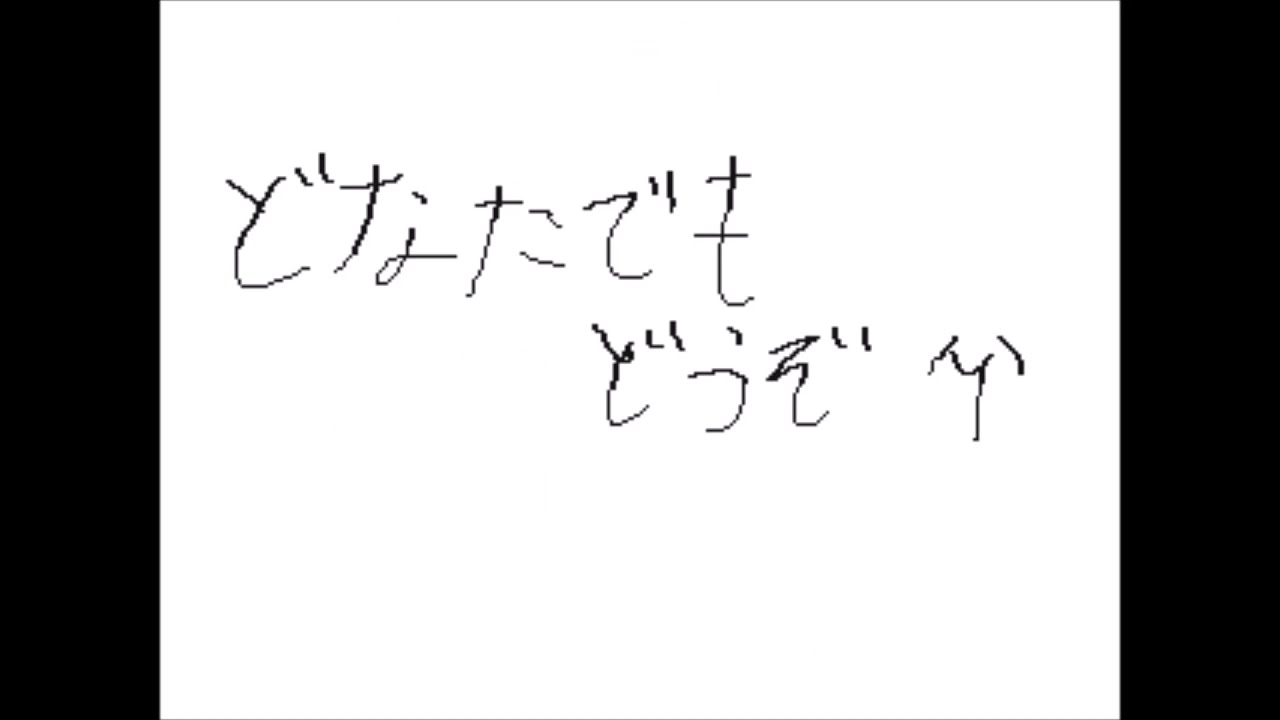 どなたでも
どうぞ